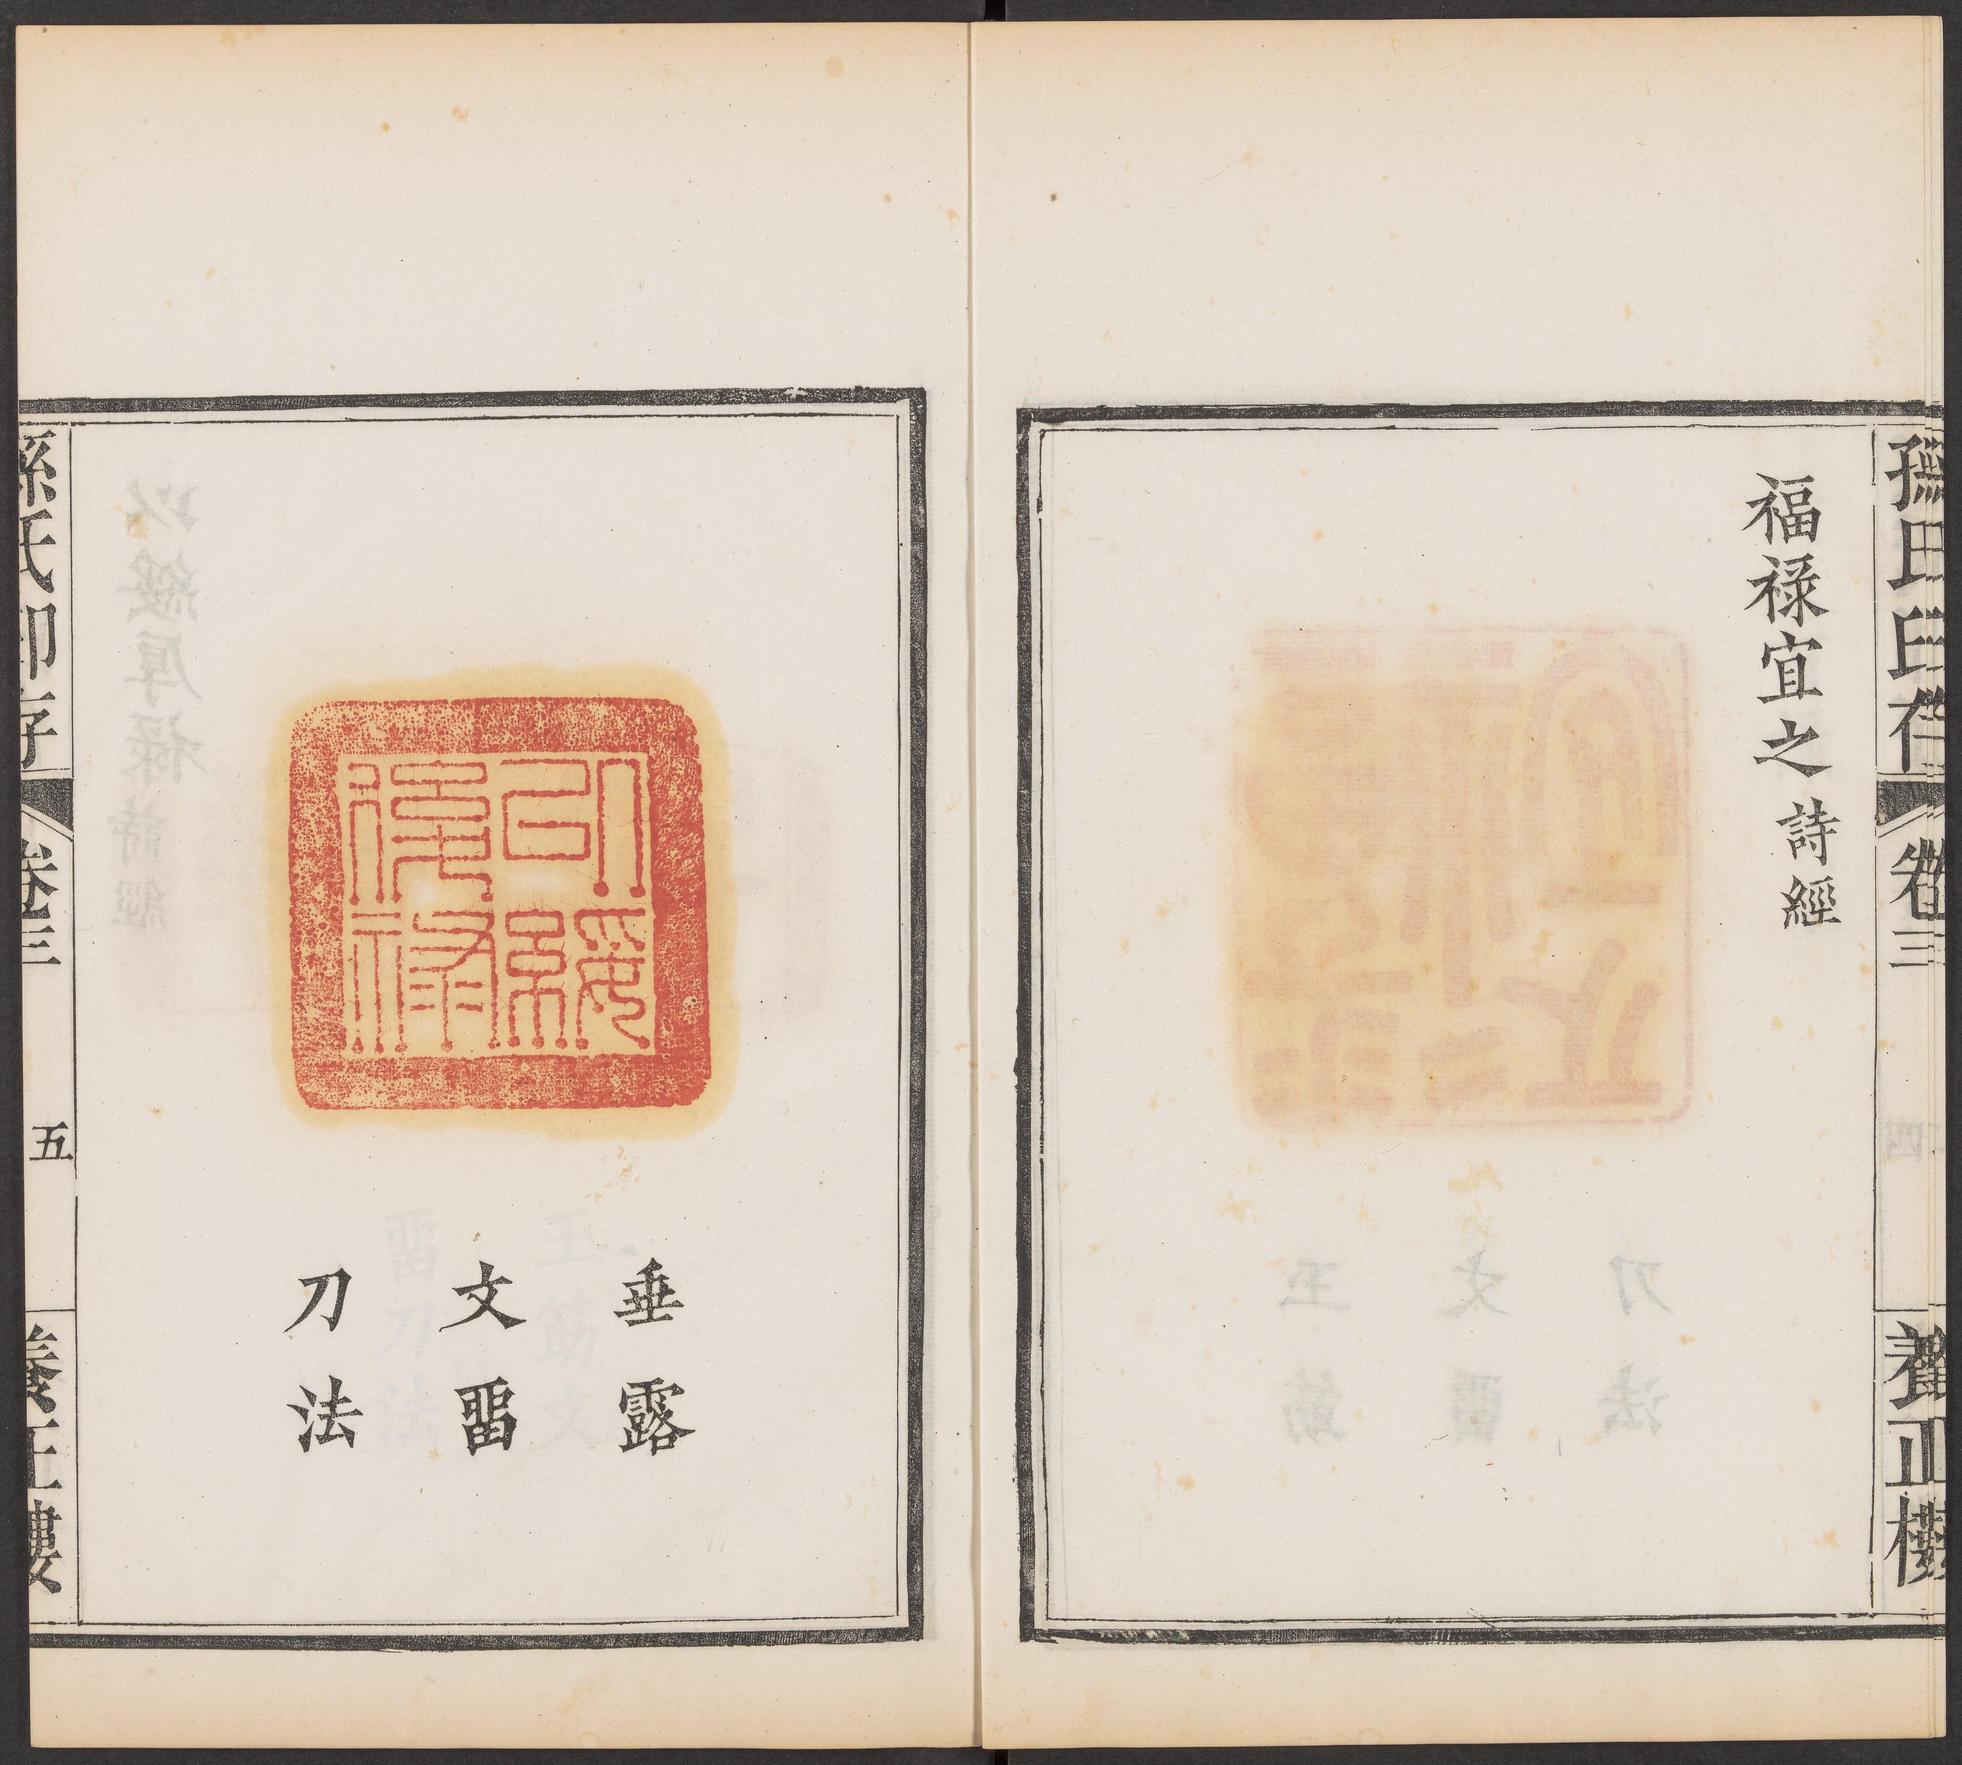 孫氏印存
卷三
養正樓
福祿宜之 詩經
以綏後祿
垂露
文畱
刀法
孫氏印存
卷三
五
養正樓